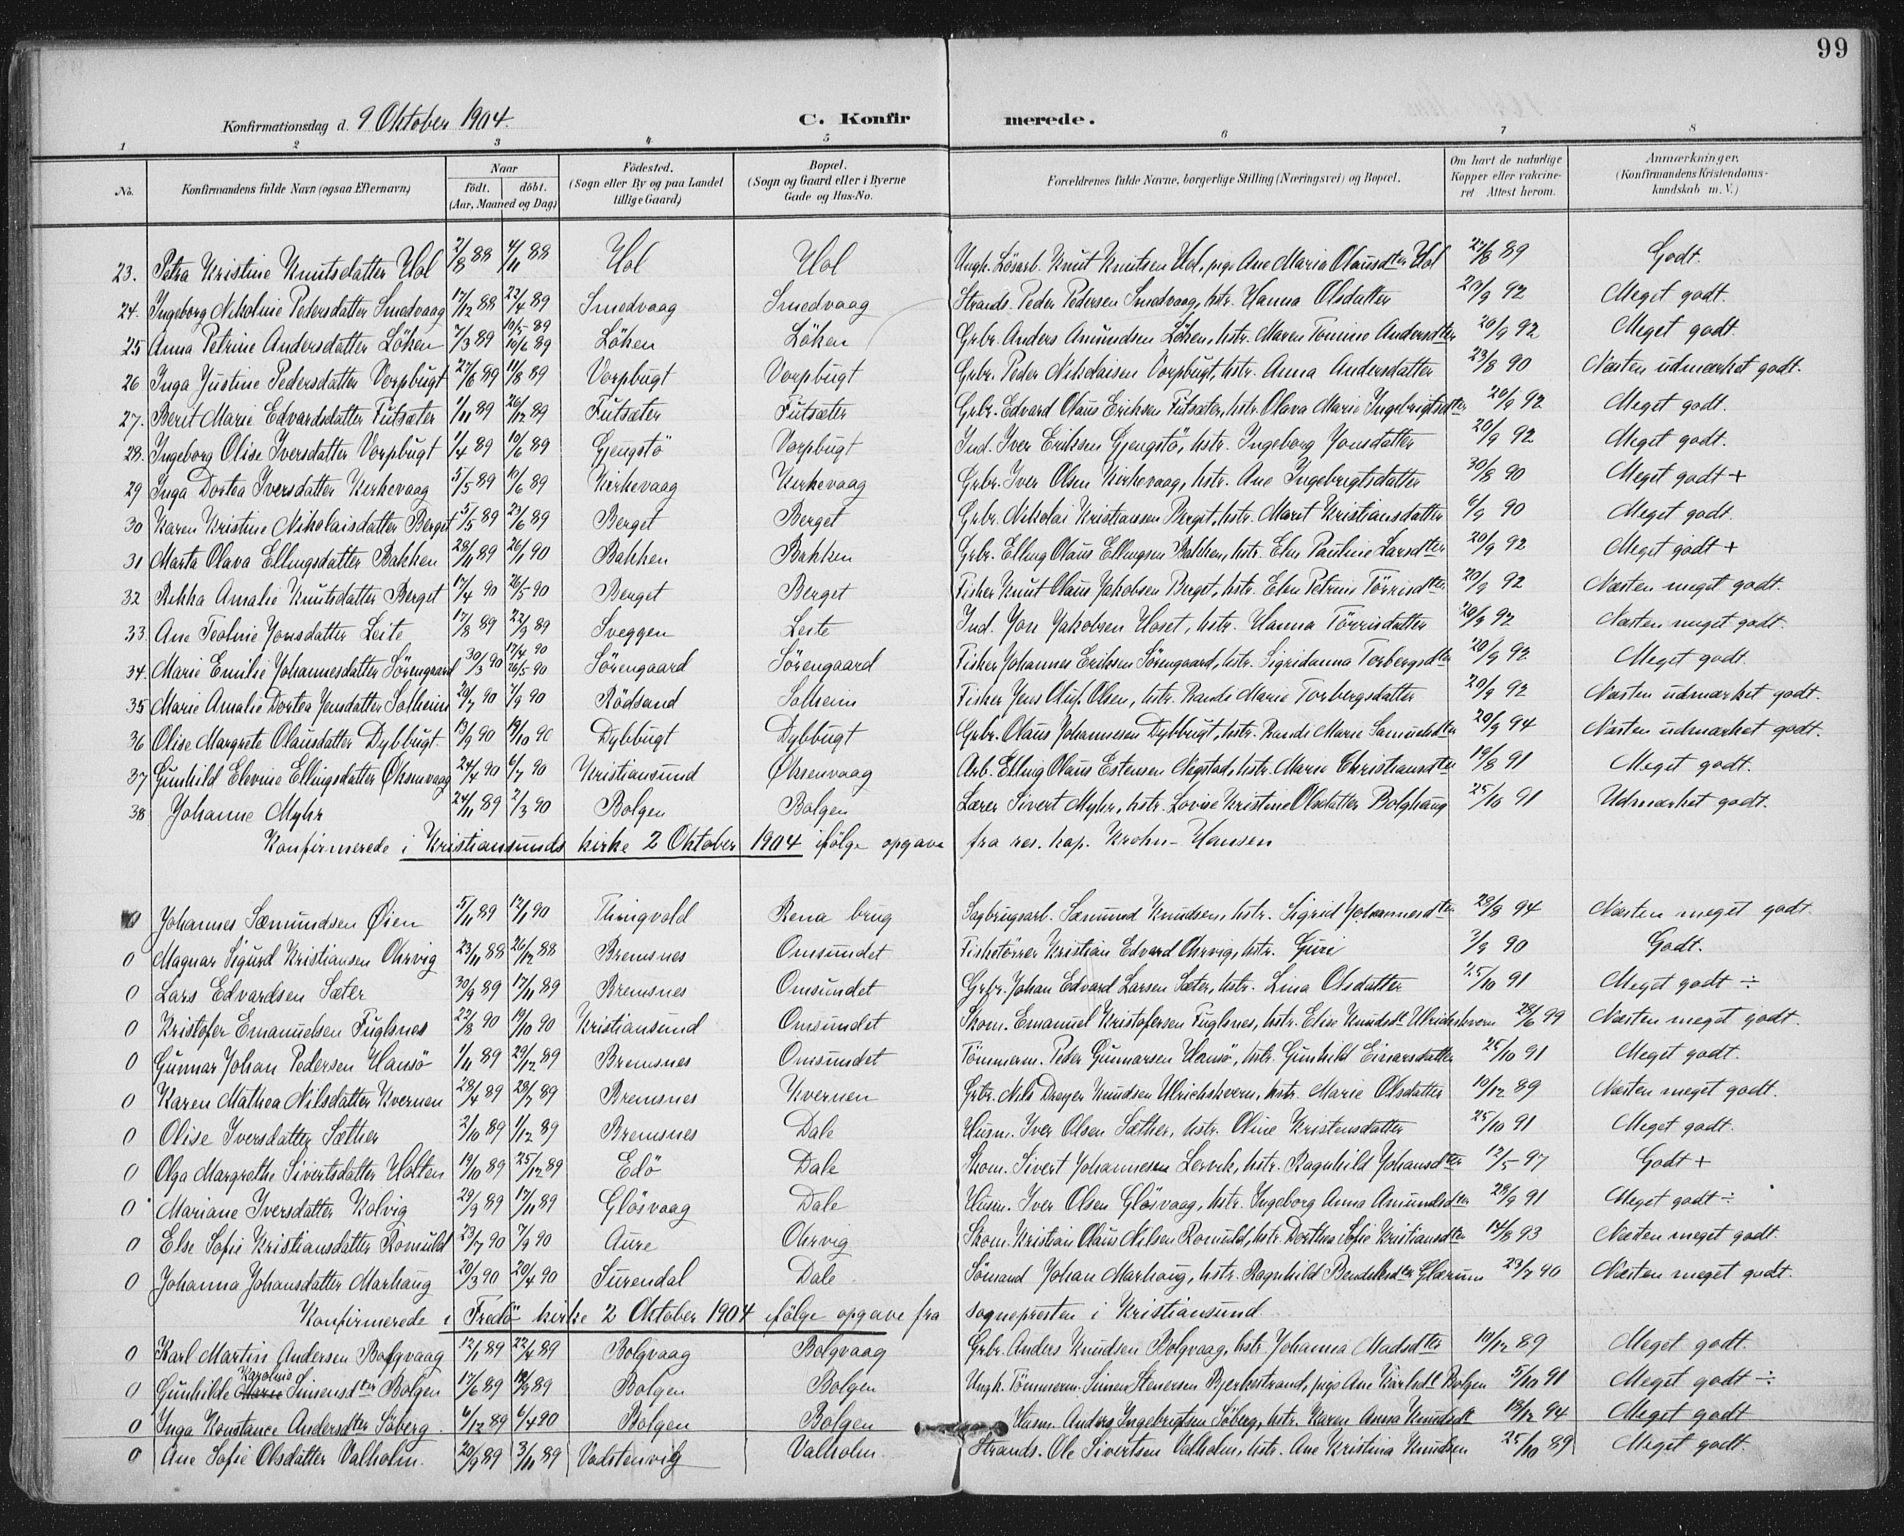 99
Konfirmationsdag d. 9 Oktober 1904. C. Konfirmerede.
1 2 3 4 5 6 7 8
No. Konfirmandens fulde Navn (ogsaa Efternavn) Naar født. døbt. (Aar, Maaned og Dag) Fødested. (Sogn eller By og paa Landet tillige Gaard) Bopæl. (Sogn og Gaard eller i Byerne Gade og Hus-No. Forældrenes fulde Navne, borgerlige Stilling (Næringsvei) og Bopæl. Om havt de naturlige Kopper eller vakcineret Attest herom. Anmærkninger. (Konfirmandens Kristendomskundskab m. V.)
23. Petra Kristine Knutsdatter Hol 2/8 88 4/11 88 Hol Hol Ungk. Lösarb. Knut Knutsen Hol, pige Ane Maria Olausdter Hol 27/8 89 Godt.
24. Ingeborg Nikoline Pedersdatter Smedvaag 17/12 88 22/4 89 Smedvaag Smedvaag Strands. Peder Pedersen Smedvaag, hstr. Hanna Olsdatter 20/9 92 Meget godt.
25 Anna Petrine Andersdatter Löken 7/3 89 19/5 89 10/6 89 Löken Löken Grbr. Anders Amundsen Löken, hstr. Maren Tomine Andersdter 20/9 92 Meget godt.
26 Inga Justine Pedersdatter Vorpbugt 27/6 89 11/8 89 Vorpbugt Vorpbugt Grbr. Peder Nikolaisen Vorpbugt, hstr. Anna Andersdatter 23/8 90 Næsten udmærket godt.
27. Berit Marie Edvardsdatter Futsæter 1/11 89 26/12 89 Futsæter Futsæter Grbr. Edvard Olaus Eriksen Futsæter, hstr. Olava Marie Ingebrigtsdter 20/9 92 Meget godt.
28. Ingeborg Olise Iversdatter Vorpbugt 1/4 89 10/6 89 Gjengstö Vorpbugt Ind. Iver Eriksen Gjengstö, hstr. Ingeborg Jonsdatter 20/9 92 Meget godt.
29 Inga Dortea Iversdatter Kirkevaag 5/5 89 10/6 89 Kirkevaag Kirkevaag Grbr. Iver Olsen Kirkevaag, hstr. Ane Ingebrigtsdatter 30/8 90 Meget godt +
30 Karen Kristine Nikolaisdatter Berget 5/5 89 23/6 89 Berget Berget Grbr. Nikolai Kristiansen Berget, hstr. Marit Kristiansdatter 6/9 90 Meget godt.
31 Marta Olava Ellingsdatter Bakken 28/11 89 26/1 90 Bakken Bakken Grbr. Elling Olaus Ellingsen Bakken, hstr. Elen Pauline Larsdter 20/9 92 Meget godt +
32 Rikka Amalie Knutsdatter Berget 17/4 90 26/5 90 Berget Berget Fisker Knut Olaus Jakobsen Berget, hstr. Elen Petrine Törrisdter 20/9 92 Næsten meget godt.
33. Ane Teoline Jonsdatter Leite 17/8 89 22/9 89 Sveggen Leite Ind. Jon Jakobsen Hoset, hstr. Hanna Törrisdatter 20/9 92 Næsten meget godt.
34. Marie Emilie Johannesdatter Sörengaard 30/3 90 17/4 90 26/5 90 Sörengaard Sörengaard Fisker Johannes Eriksen Sörengaard, hstr. Sigridanna Torbergsdter 20/9 92 Meget godt.
35 Marie Amalie Dortea Jensdatter Solheim 20/7 90 7/9 90 Rödsand Solheim Fisker Jens Oluf Olsen, hstr. Randi Marie Torbergsdatter 20/9 92 Næsten udmærket godt.
36 Olise Margrete Olausdatter Dybbugt. 13/9 90 19/10 90 Dybbugt Dybbugt Grbr. Olaus Johannesen Dybbugt, hstr. Randi Marie Samuelsdter 20/9 94 Næsten udmærket godt.
37 Gunhild Elevine Ellingsdatter Øksenvaag 24/4 90 6/7 90 Kristiansund Øksenvaag Arb. Elling Olaus Estensen Negstad, hstr. Marie Christiansdter 19/8 91 Meget godt.
38 Johanne Myhr 24/11 89 2/3 90 Bolgen Bolgen Lærer Sivert Myhr, hstr. Lovise Kristine Olsdatter Bolghaug 25/10 91 Udmærket godt.
Konfirmerede i Kristiansunds kirke 2 Oktober 1904 ifölge opgave fra res. kap. Krohn-Hansen
0 Johannes Sæmundsen Øien 5/11 89 12/1 90 Thingvold Rena brug Sagbrugsarb. Sæmund Knudsen, hstr. Sigrid Johannesdter 29/8 94 Næsten meget godt.
0 Magnar Sigurd Kristiansen Ohrvig 23/11 88 26/12 88 Bremsnes Omsundet Fisketörrer Kristian Edvard Ohrvig, hstr. Guri 3/9 90 Godt.
0 Lars Edvardsen Sæter 30/9 89 17/11 89 Bremsnes Omsundet Grbr. Johan Edvard Larsen Sæter, hstr. Lina Olsdatter 25/10 91 Meget godt ÷
0 Kristofer Emanuelsen Fuglsnes 22/8 90 19/10 90 Kristiansund Omsundet Skom. Emanuel Kristofersen Fuglsnes, hstr. Elise Knudsdt Ulrichskvern 29/6 99 Næsten meget godt.
0 Gunnar Johan Pedersen Hansö 1/11 89 29/12 89 Bremsnes Omsundet Tömmerm. Peder Gunnarsen Hansö, hstr. Gunhild Einarsdatter 25/10 91 Meget godt.
0 Karen Mathea Nilsdatter Kvernen 28/4 89 28/7 89 Bremsnes Kvernen Grbr. Nils Dreyer Knudsen Ulrichskvern, hstr. Marie Olsdatter 10/12 89 Næsten meget godt.
0 Olise Iversdatter Sæther 2/10 89 1/12 89 Bremsnes Dale Husm. Iver Olsen Sæther, hstr. Oline Kristensdatter 25/10 91 Meget godt.
0 Olga Margrethe Sivertsdatter Holten 19/10 89 25/12 89 Edö Dale Skom. Sivert Johannesen Lervik, hstr. Ragnhild Johansdter 12/5 97 Godt +
0 Mariane Iversdatter Kolvig 29/9 89 17/11 89 Glösvaag Dale Husm. Iver Olsen Glösvaag, hstr. Ingeborg Anna Amundsdter 29/9 91 Meget godt ÷
0 Else Sofie Kristiansdatter Romuld 23/7 90 7/9 90 Aure Ohrvig Skom. Kristian Olaus Nilsen Romuld, hstr. Dorthea Sofie Kristiansdter 14/8 93 Næsten meget godt.
0 Johanna Johansdatter Marhaug 20/3 90 20/4 90 Surendal Dale Sömand Johan Marhaug, hstr. Ragnhild Bendiksdter Glærum 23/7 90 Næsten meget godt.
Konfirmerede i Fredö kirke 2 Oktober 1904 ifölge opgave fra sognepresten i Kristiansund.
0 Karl Martin Andersen Bolgvaag 12/1 89 22/4 89 Bolgvaag Bolgvaag Grbr. Anders Knudsen Bolgvaag, hstr. Johanna Madsdter 10/12 89 Meget godt.
0 Gunhilde Karoline Simensdter Bolgen 17/6 89 Bolgen Bolgen Ungk. Tömmerm. Simen Stenersen Bjerkestrand, pige Ane Karlsdt Bolgen 5/10 91 Meget godt ÷
0 Inga Konstance Andersdter Söberg. 6/12 89 6/4 90 Bolgen Bolgen Husm. Anders Ingebrigtsen Söberg, hstr. Karen Anna Knudsdt 18/12 94 Meget godt
0 Ane Sofie Olsdatter Valholm. 20/9 89 3/11 89 Vadstenvig Valholm. Strands. Ole Sivertsen Valholm, hstr. Ane Kristina Knudsen 25/10 89 Meget godt.